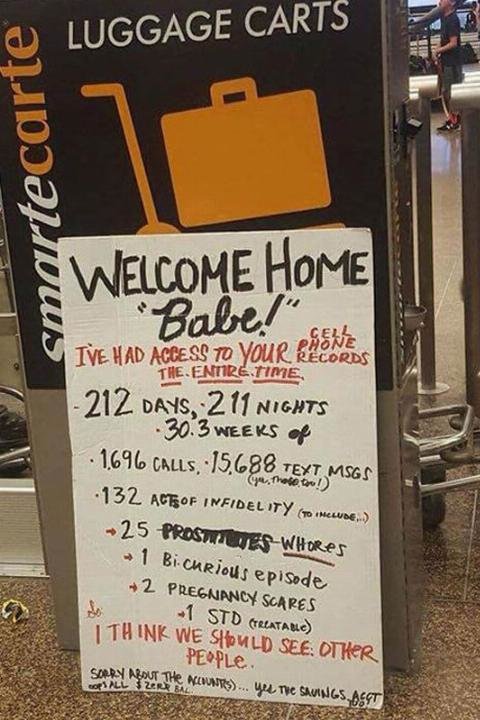 LUGGAGE CARTS
smartecarte
WELCOME HOME
"Babe!"
I'VE HAD ACCESS TO YOUR CELL PHONE RECORDS
THE ENTIRE TIME.
- 212 DAYS, · 211 NIGHTS
· 30.3 WEEKS of
· 1,696 CALLS, · 15,688 TEXT MSGS
(yes, those, too!)
· 132 ACTS OF INFIDELITY (TO INCLUDE...)
→ 25 PROSTITUTES WHORES
→ 1 Bi-curious episode
→ 2 PREGNANCY SCARES
→ 1 STD (TREATABLE)
So
I THINK WE SHOULD SEE OTHER
PEOPLE.
SORRY ABOUT THE ACCOUNT(S)... yes, THE SAVINGS ACCT
oops ALL $ ZERO BAL. TOO!